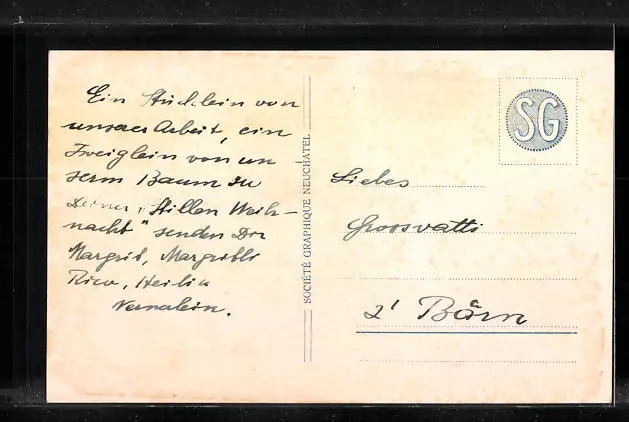 Ein Stücklein von
unserer Arbeit, ein
Zweiglein von un
serm Baum zu
Deiner "Stillen Weih-
nacht" senden Dir
Margrit, Margritli
Rico, Heidi
Vernalein.
SOCIÉTÉ GRAPHIQUE NEUCHATEL
SG
Liebes
Grossvatti
z' Bärn